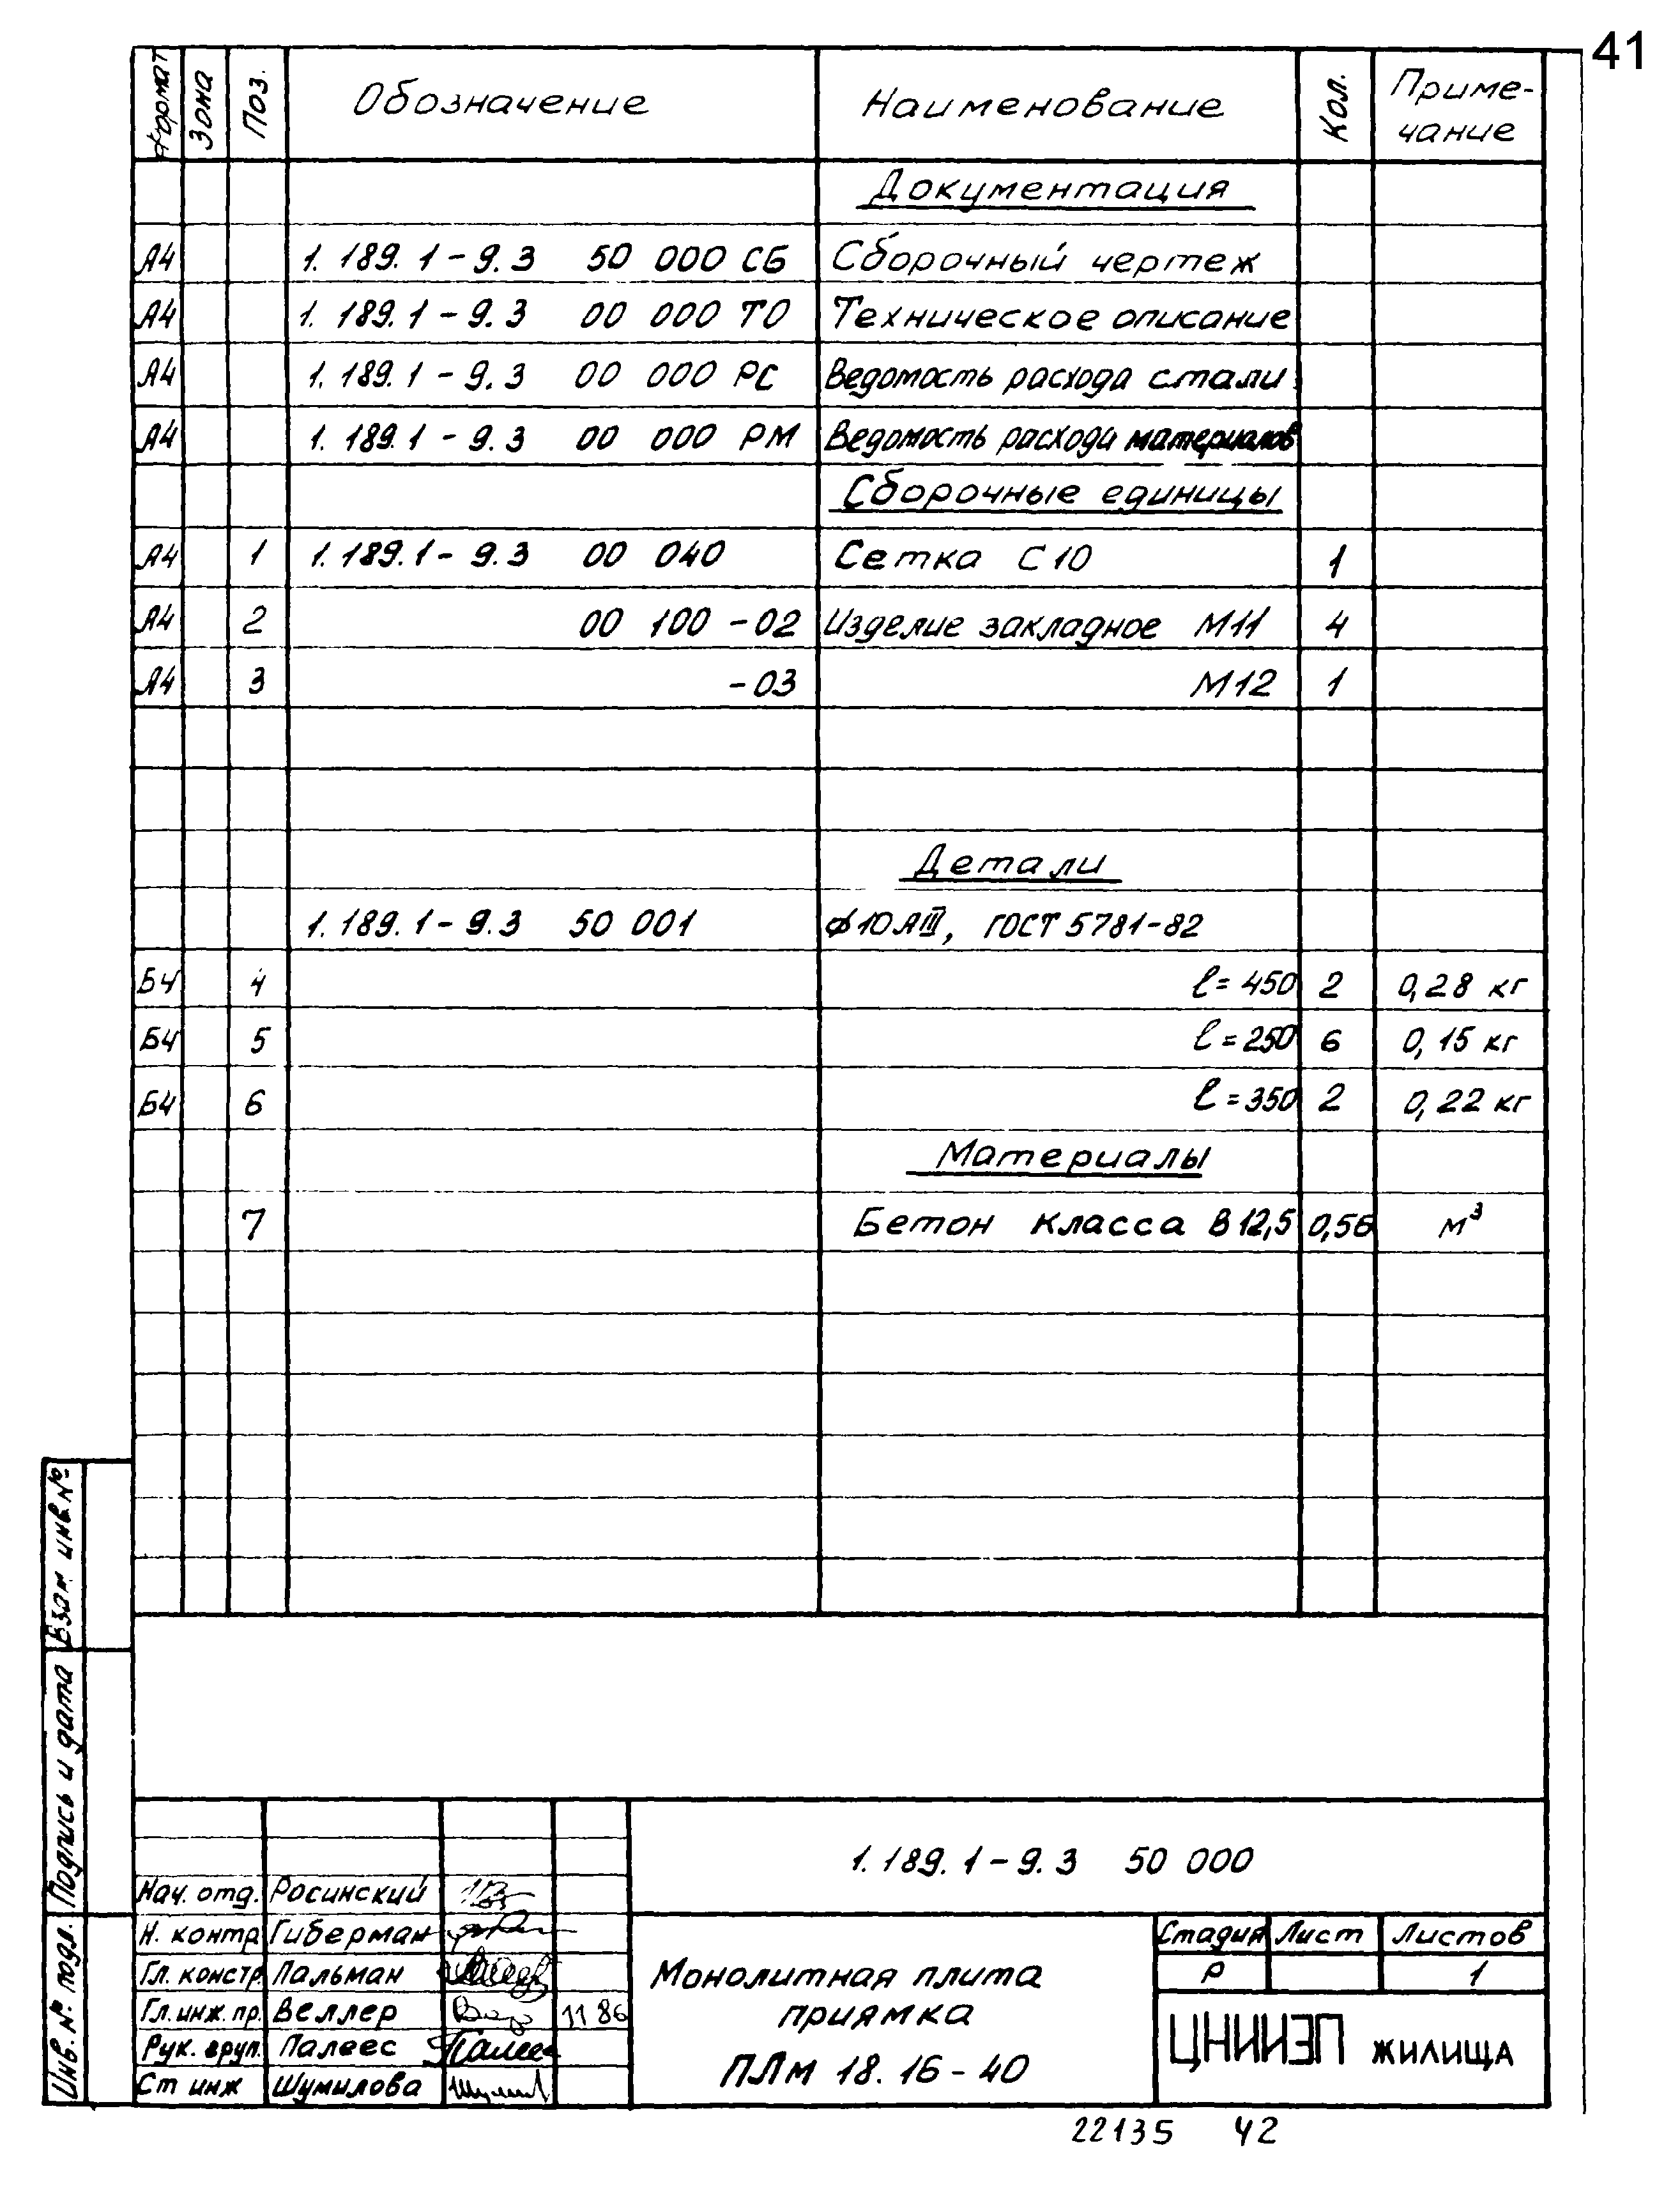 41
Формат Зона Поз. Обозначение Наименование Кол. Приме-
чание
Документация
А4 1.189.1-9.3 50 000 СБ Сборочный чертеж
А4 1.189.1-9.3 00 000 ТО Техническое описание
А4 1.189.1-9.3 00 000 РС Ведомость расхода стали
А4 1.189.1-9.3 00 000 РМ Ведомость расхода материалов
Сборочные единицы
А4 1 1.189.1-9.3 00 040 Сетка С10 1
А4 2 00 100-02 Изделие закладное М11 4
А4 3 -03 М12 1
Детали
1.189.1-9.3 50 001 ϕ10АIII, ГОСТ 5781-82
Б4 4 ℓ=450 2 0,28 кг
Б4 5 ℓ=250 6 0,15 кг
Б4 6 ℓ=350 2 0,22 кг
Материалы
7 Бетон класса В12,5 0,56 м³
Взам инв.№
Подпись и дата
Инв.№ подл.
1.189.1-9.3 50 000
Нач. отд. Росинский
Н. контр Гиберман
Гл. констр. Пальман
Гл. инж. пр. Веллер 11 86
Рук. груп. Палеес
Ст инж Шумилова
Монолитная плита
приямка
ПЛм 18.16-40
Стадия Лист Листов
Р 1
ЦНИИЭП жилища
22135 42